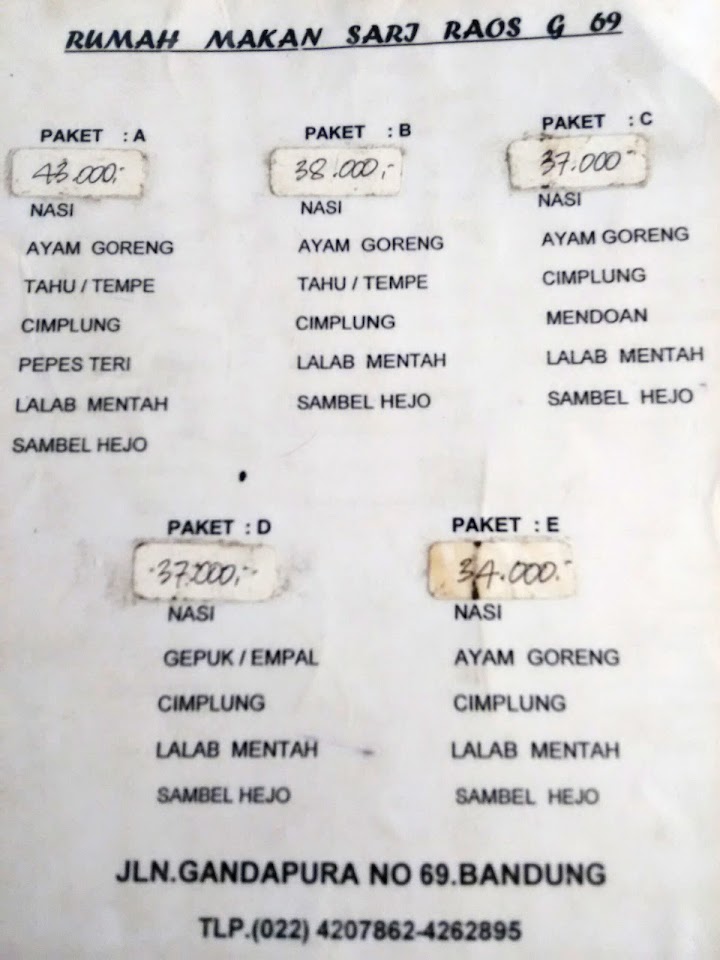 RUMAH MAKAN SARI RAOS G 69
PAKET : A
43.000,-
NASI
AYAM GORENG
TAHU / TEMPE
CIMPLUNG
PEPES TERI
LALAB MENTAH
SAMBEL HEJO
PAKET : B
38.000,-
NASI
AYAM GORENG
TAHU / TEMPE
CIMPLUNG
LALAB MENTAH
SAMBEL HEJO
PAKET : C
37.000-
NASI
AYAM GORENG
CIMPLUNG
MENDOAN
LALAB MENTAH
SAMBEL HEJO
PAKET : D
37.000,-
NASI
GEPUK / EMPAL
CIMPLUNG
LALAB MENTAH
SAMBEL HEJO
PAKET : E
34.000.-
NASI
AYAM GORENG
CIMPLUNG
LALAB MENTAH
SAMBEL HEJO
JLN.GANDAPURA NO 69.BANDUNG
TLP.(022) 4207862-4262895